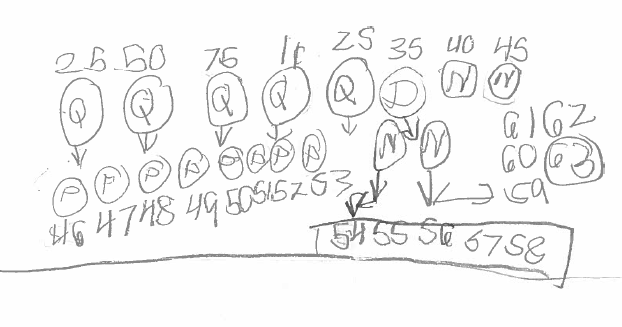 25 50 75 1 25 35 40 45
Q Q Q Q Q D N N
N N 61 62
P P P P P P P P 60 63
46 47 48 49 50 51 52 53 59
54 55 56 57 58